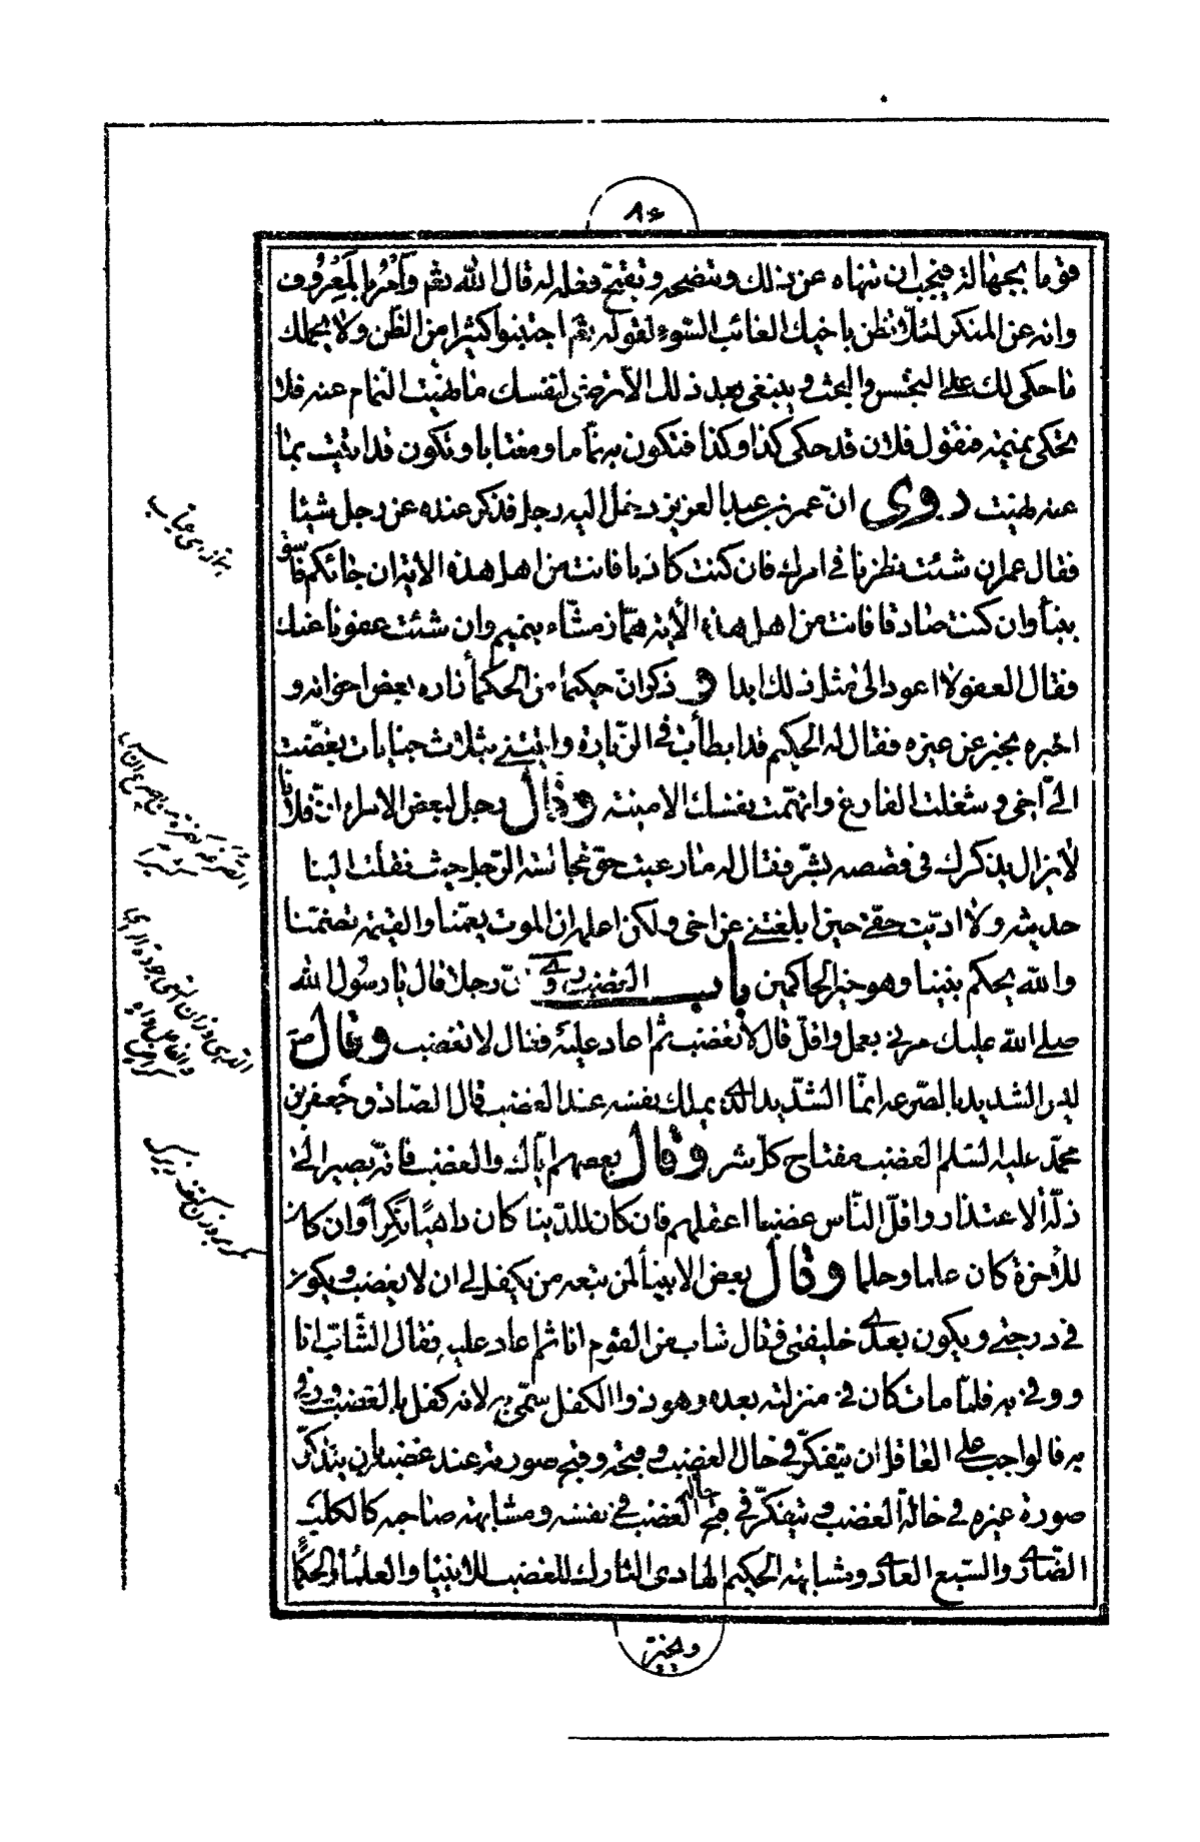 ٨٤
قوما بجهالة فيجب ان تنهاه عن ذلك وتنصحه وتقبح فعله له قال الله تعم وأمر بالمعروف
وانه عن المنكر لئلا تظن باخيك الغائب السوء لقوله تعم اجتنبوا كثيرا من الظن ولا يحملك
ما حكى لك على التجسس والبحث وينبغي بعد ذلك الا ترضى لنفسك ما نهيت النمام عنه فلا
تحكى نميمته فتقول فلان قد حكى كذا وكذا فتكون به نماما ومغتابا وتكون قد اتيت بما
عنه نهيت روى ان عمر بن عبد العزيز دخل اليه رجل فذكر عنده عن رجل شيئا
فقال عمر ان شئت نظرنا في امرك فان كنت كاذبا فانت من اهل هذه الاية ان جائكم فاسق
بنبأ وان كنت صادقا فانت من اهل هذه الأية هماز مشاء بنميم وان شئت عفونا عنك
فقال العفو لا اعود الى مثل ذلك ابدا و ذكر ان حكيما من الحكمأ زاره بعض اخوانه و
اخبره بخبر عن غيره فقال له الحكيم قد ابطأت في الزيارة واتيتني بثلاث جنايات بغضت
الىّ اخى وشغلت الفارغ واتهمت نفسك الامينة وقال رجل لبعض الامراء ان فلانا
لا يزال يذكرك في قصصه بشر فقال له ما رعيت حق مجالسة الرجل حيث نقلت الينا
حديثه ولا اديت حقى حين ابلغتنى عن اخى ولكن اعلمه ان الموت يعمنا والقيمة تضمنا
والله يحكم بيننا وهو خير الحاكمين باب الغضب روى ان رجلا قال يا رسول الله
صلى الله عليك مرني بعمل واقل قال لا تغضب ثم اعاد عليه فقال لا تغضب وقال ص
ليس الشديد بالصرعة انما الشديد الذى يملك نفسه عند الغضب قال الصادق جعفر بن
محمد عليه السلم الغضب مفتاح كل شر وقال بعضهم اياك والغضب فانه يصير الى
ذلة الاعتذار واقل الناس غضبا اعقلهم فان كان للدنيا كان داهيًا نكرًا وان كان
للأخرة كان علما وحلما وقال بعض الانبيأ لمن تبعه من يكفل لى ان لا يغضب ويكون
في درجتى ويكون بعدى خليفتى فقال شاب من القوم انا ثم اعاد عليه فقال الشاب انا
ووفى به فلما مات كان في منزلته بعده وهو ذوا الكفل سمى به لانه كفل بالغضب ووفى
به فالواجب على العاقل ان يتفكر في حال الغضب و قبحه وقبح صورته عند غضبه بان يتذكر
صورة غيره في حالة الغضب ويتفكر في قبح حالة الغضب في نفسه ومشابهة صاحبه كالكلب
الضارى والسبع العادى ومشابهة الحكيم الهادى التارك للغضب للانبيا والعلمأ والحكما
ويخير